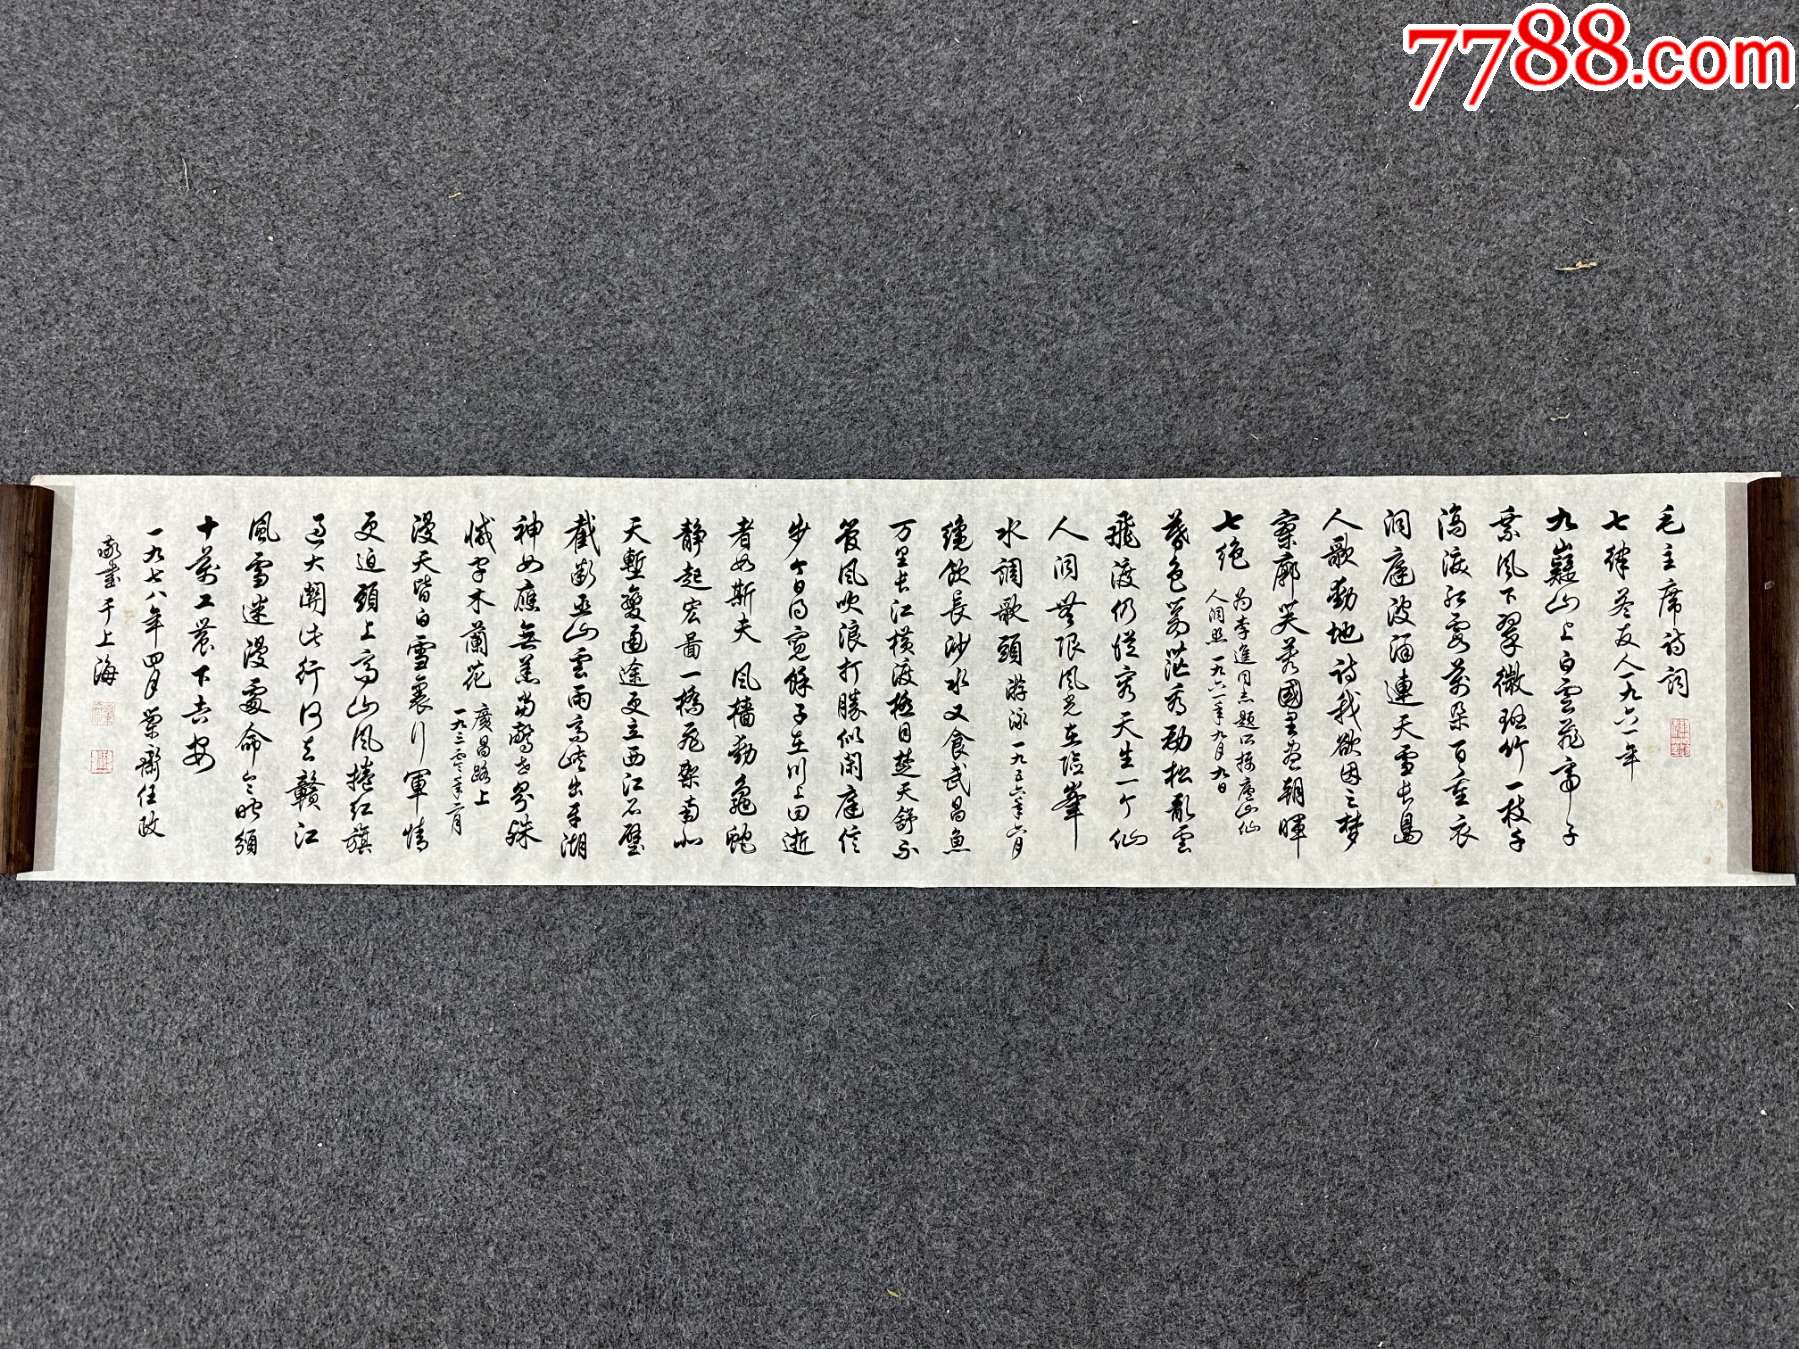 7788.com
毛主席詩詞
七律 答友人 一九六一年
九嶷山上白雲飛帝子
乘風下翠微斑竹一枝千
滴淚紅霞萬朵百重衣
洞庭波涌連天雪長島
人歌動地詩我欲因之夢
寥廓芙蓉國里盡朝暉
七絕 為李進同志題所攝廬山仙
人洞照 一九六一年九月九日
暮色蒼茫看勁松亂雲
飛渡仍從容天生一个仙
人洞無限風光在險峯
水調歌頭 游泳 一九五六年六月
纔飲長沙水又食武昌魚
万里長江橫渡極目楚天舒不
管風吹浪打勝似閑庭信
步今日得寬餘子在川上曰逝
者如斯夫 風檣動龜蛇
靜起宏圖一橋飛架南北
天塹變通途更立西江石壁
截斷巫山雲雨高峽出平湖
神女應無恙當驚世界殊
減字木蘭花 廣昌路上
一九三零年二月
漫天皆白雪裏行軍情
更迫頭上高山風捲紅旗
過大關此行何去贛江
風雪迷漫處命令昨頒
十萬工農下吉安
一九七八年四月 蘭齋任政
敬書于上海